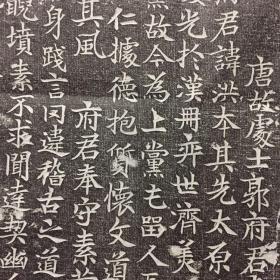 唐故處士郭府君
府君諱洪本其先太原
光於漢冊弈世濟美
焉故今為上黨屯留人
仁據德抱質懷文道
其風　府君奉守素
身踐言罔違稽古之道
睨墳素不求聞達契幽